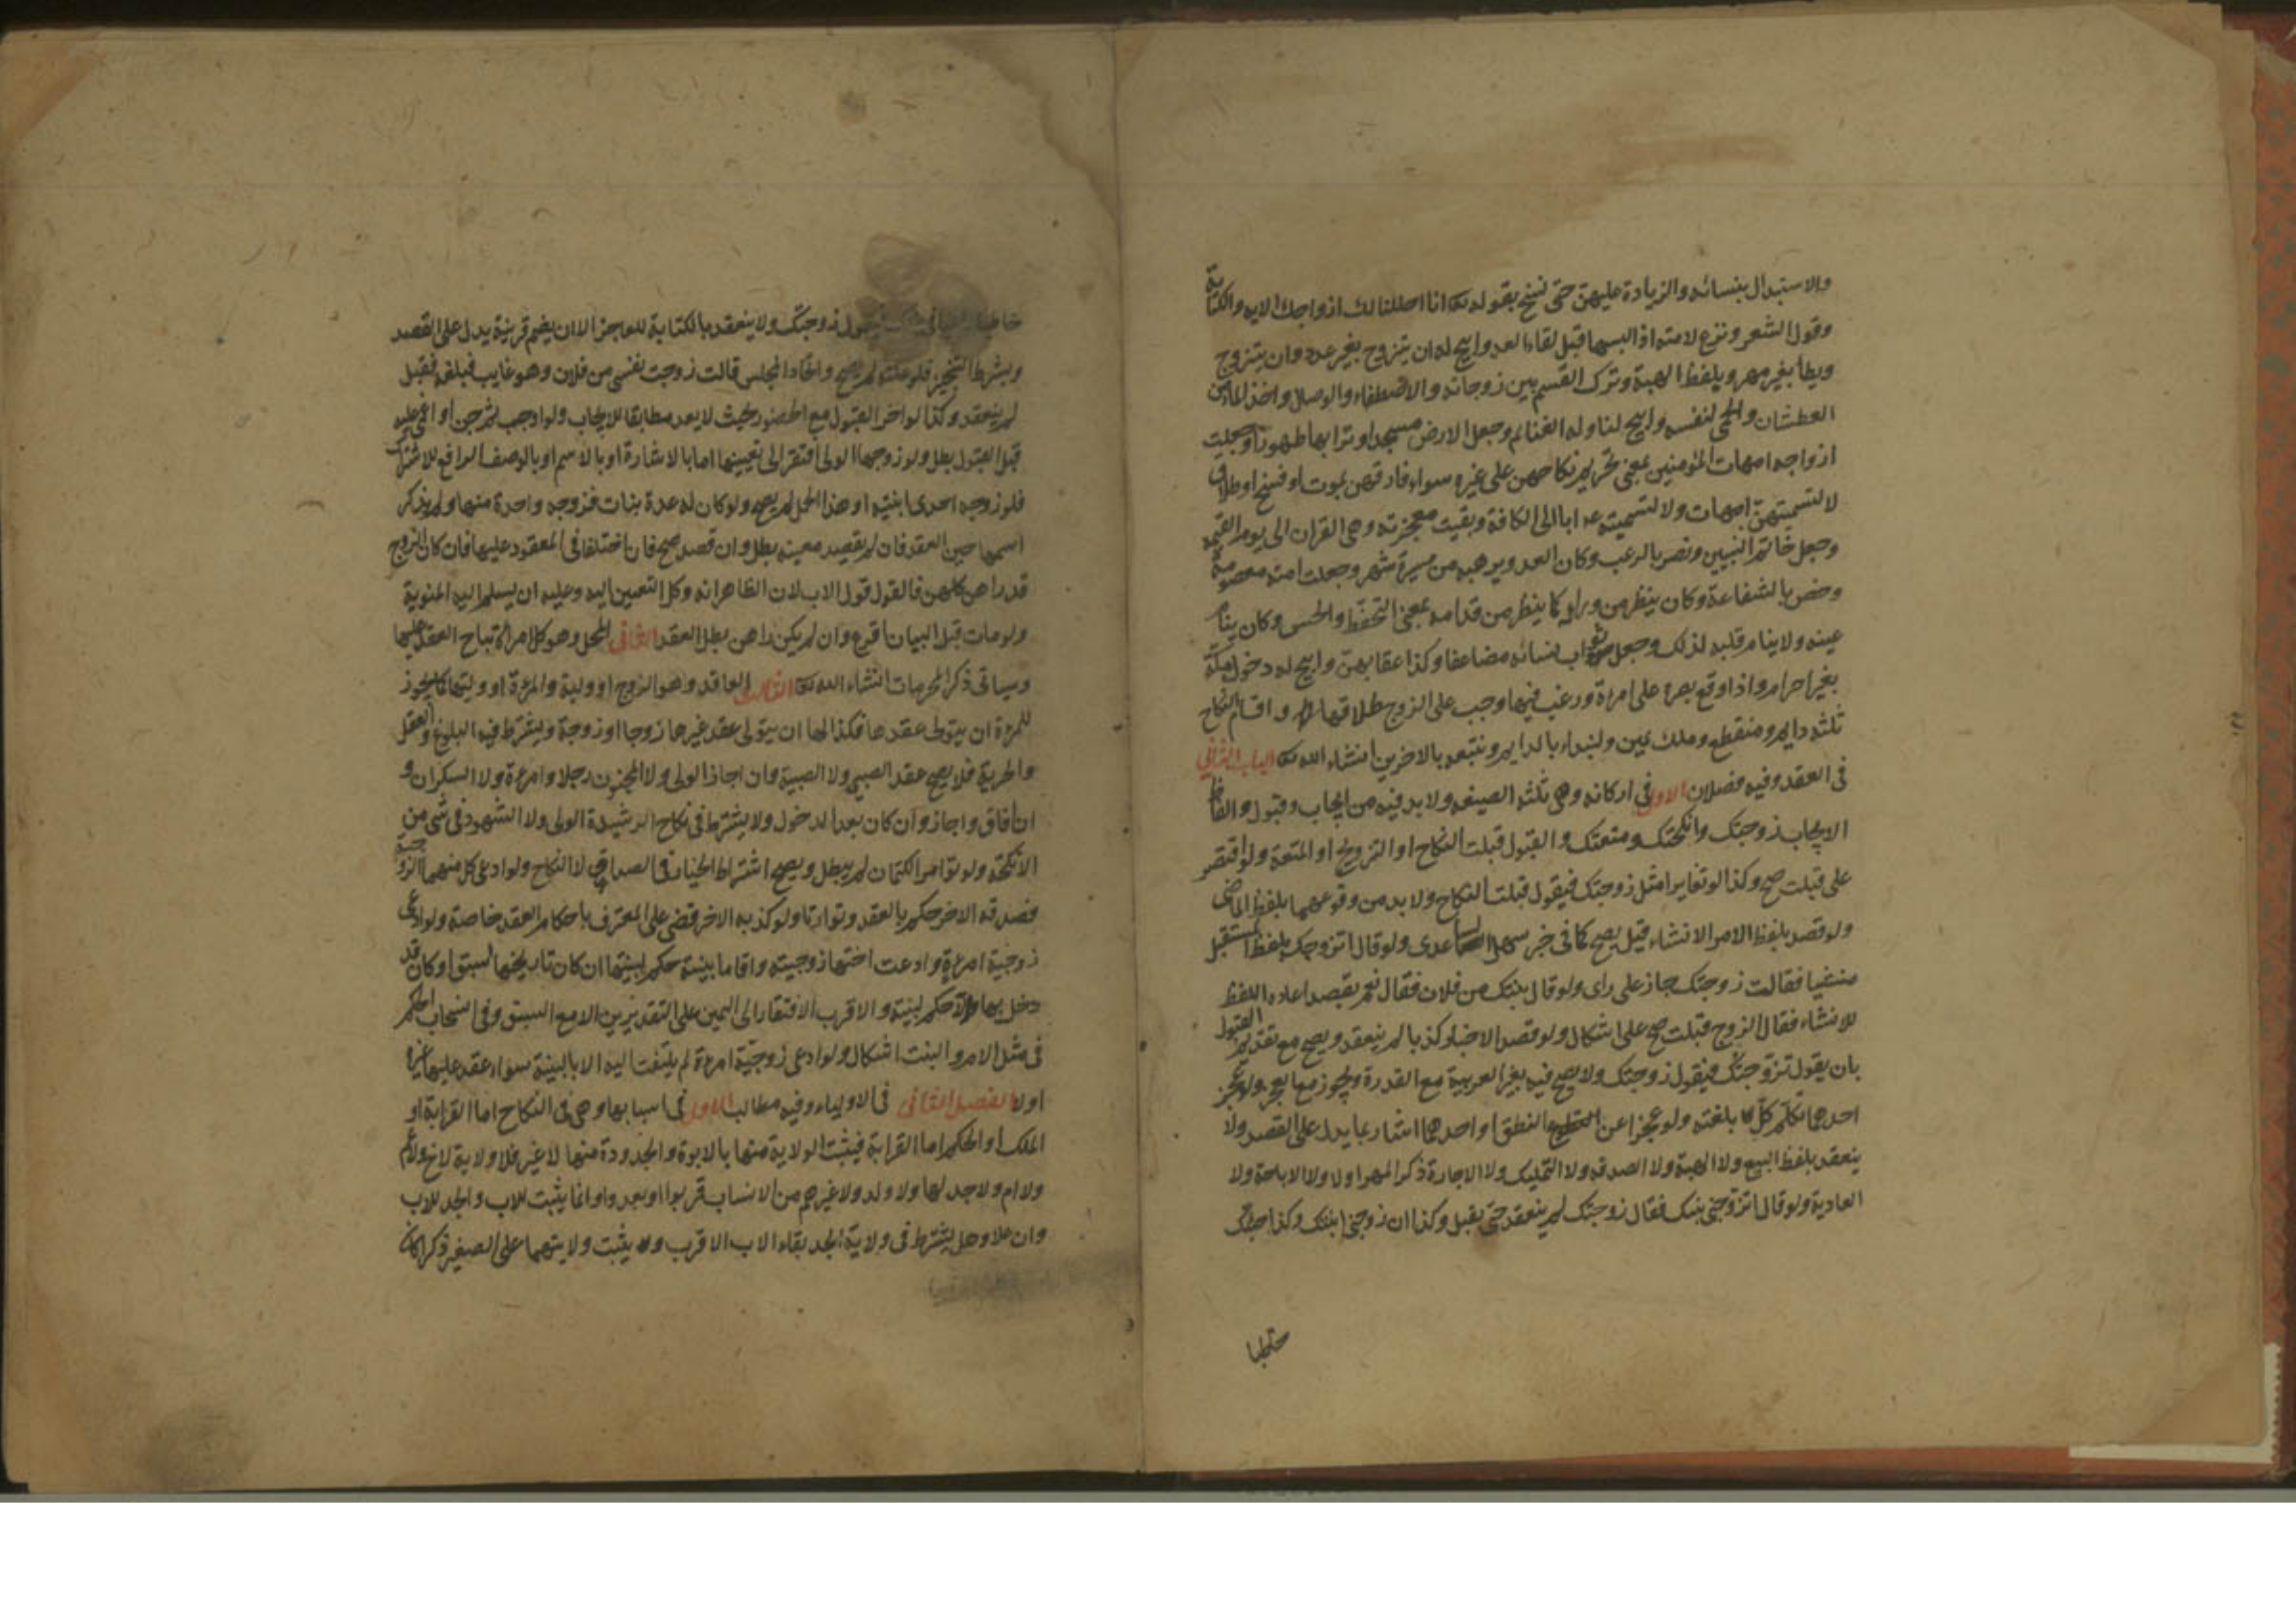 والاستبدال بنسائه والزيادة عليهن حتى نسخ بقوله تعه انا احللنا لك ازواجك الايه والكتابة
وقول الشعر ونزع لامته اذا لبسها قبل لقاء العدو وابيح له ان يتزوج بغير عدد وان يتزوج
ويطأ بغير مهر وبلفظ الهبة وترك القسم بين زوجاته والاصطفاء والوصال واخذ الماء من
العطشان والحمى لنفسه وابيح لنا وله الغنائم وجعل الارض مسجدا وترابها طهورا وجعلت
ازواجه امهات المؤمنين بمعنى تحريم نكاحهن على غيره سواء فارقهن بموت او فسخ او طلاق
لا لتسميتهن امهات ولا لتسميته عه ابا الى الكافة وبقيت معجزته وهى القران الى يوم القيمه
وجعل خاتم النبيين ونصر بالرعب وكان العدو يرهبه من مسيرة شهر وجعلت امته معصومة
وخص بالشفاعة وكان ينظر من ورايه كما ينظر من قدامه بمعنى التحفظ والحس وكان ينام
عينه ولا ينام قلبه لذلك وجعل ثواب نسائه مضاعفا وكذا عقابهن وابيح له دخول مكة
بغير احرام واذا وقع بصره على امرءة ورغب فيها وجب على الزوج طلاقها واقسام النكاح
ثلثه دايم ومنقطع وملك يمين ولنبداء بالدايم ونتبعه بالاخرين انشاء الله تعه الباب الثاني
فى العقد وفيه فصلان الاول فى اركانه وهى ثلثه الصيغه ولا بد فيه من ايجاب وقبول والفاظ
الايجاب زوجتك وانكحتك ومتعتك والقبول قبلت النكاح او التزويج او المتعة ولو اقتصر
على قبلت صح وكذا لو تغايرا مثل زوجتك فيقول قبلت النكاح ولا بد من وقوعهما بلفظ الماضى
ولو قصد بلفظ الامر الانشاء قيل يصح كما فى خبر سهل الساعدى ولو قال اتزوجك بلفظ المستقبل
منشيا فقالت زوجتك جاز على راى ولو قال بنتك من فلان فقال نعم بقصد اعاده اللفظ
للانشاء فقال الزوج قبلت صح على اشكال ولو قصد الاخبار كذبا لم ينعقد ويصح مع تقديم القبول
بان يقول تزوجتك فيقول زوجتك ولا يصح فيه بغير العربية مع القدرة ويجوز مع العجز ولو عجز
احدهما تكلم كل بلغته ولو عجزا عن النطق او احدهما اشار بما يدل على القصد ولا
ينعقد بلفظ البيع ولا الهبة ولا الصدقه ولا التمليك ولا الاجارة ذكر المهر اولا ولا الاباحة ولا
العادية ولو قال اتزوجنى بنتك فقال زوجتك لم ينعقد حتى يقبل وكذا ان زوجنى ابنتك وكذا جئتك
خاطبا
خاطبا فيقول زوجتك ولا ينعقد بالكتابة للعاجز الا ان يضم قرينة يدل على القصد
ويشرط التنجيز فلو علقه لم يصح واتحاد المجلس قالت زوجت نفسى من فلان وهو غايب فبلغه فقبل
لم ينعقد وكذا لو اخر القبول مع الحضور بحيث لا يعد مطابقا للايجاب ولو اوجب ثم جن او اغمى عليه
قبل القبول بطل ولو زوجها الولى افتقر الى تعيينها اما بالاشارة او بالاسم او بالوصف الرافع للاشتراك
فلو زوجه احدى ابنتيه او هذا الحمل لم يصح ولو كان له عدة بنات فزوجه واحدة منها ولم يذكر
اسمها حين العقد فان لم يقصد معينه بطل وان قصد صح فان اختلفا فى المعقود عليها فان كان الزوج
قد راهن كلهن فالقول قول الاب لان الظاهر انه وكل التعيين اليه وعليه ان يسلم اليه المنوية
ولو مات قبل البيان اقرع وان لم يكن راهن بطل العقد الثانى المحل وهو كل امراة تباح العقد عليها
وسياتى ذكر المحرمات انشاء الله تعه الثالث العاقد وهو الزوج او وليه والمرءة او وليها كما يجوز
للمرءة ان يتولى عقدها فكذا لها ان يتولى عقد غيرها زوجا او زوجة ويشترط فيه البلوغ والعقل
والحرية فلا يصح عقد الصبى ولا الصبية وان اجاز الولى ولا المجنون رجلا وامرءة ولا السكران و
ان افاق واجاز وان كان بعد الدخول ولا يشترط فى نكاح الرشيدة الولى ولا الشهود فى شى من
الانكحة ولو تؤامر الكتمان لم يبطل ويصح اشتراط الخيار فى الصداق لا النكاح ولو ادعى كل منهما الزوجية
فصدقه الاخر حكم بالعقد وتوارثا ولو كذبه الاخر قضى على المعترف باحكام العقد خاصة ولو ادعى
زوجية امرءة وادعت اختها زوجيته واقاما بينة حكم لبينتها ان كان تاريخها اسبق او كان قد
دخل بها والا حكم لبينة والاقرب الافتقار الى اليمين على التقديرين الا مع السبق وفى انسحاب الحكم
فى مثل الام والبنت اشكال ولو ادعى زوجية امرءة لم يلتفت اليه الا بالبينة سواء عقد عليها غيره
اولا الفصل الثانى فى الاولياء وفيه مطالب الاول فى اسبابها وهى فى النكاح اما القرابة او
الملك او الحكم اما القرابة فيثبت الولاية منها بالابوة والجدودة منها لا غير فلا ولاية لاخ ولا عم
ولا ام ولا جد لها ولا ولد ولا غيرهم من الانساب قربوا او بعدوا وانما يثبت للاب والجد للاب
وان علا وهل يشترط فى ولاية الجد بقاء الاب الاقرب يثبت ولايتهما على الصغير ذكرا كان